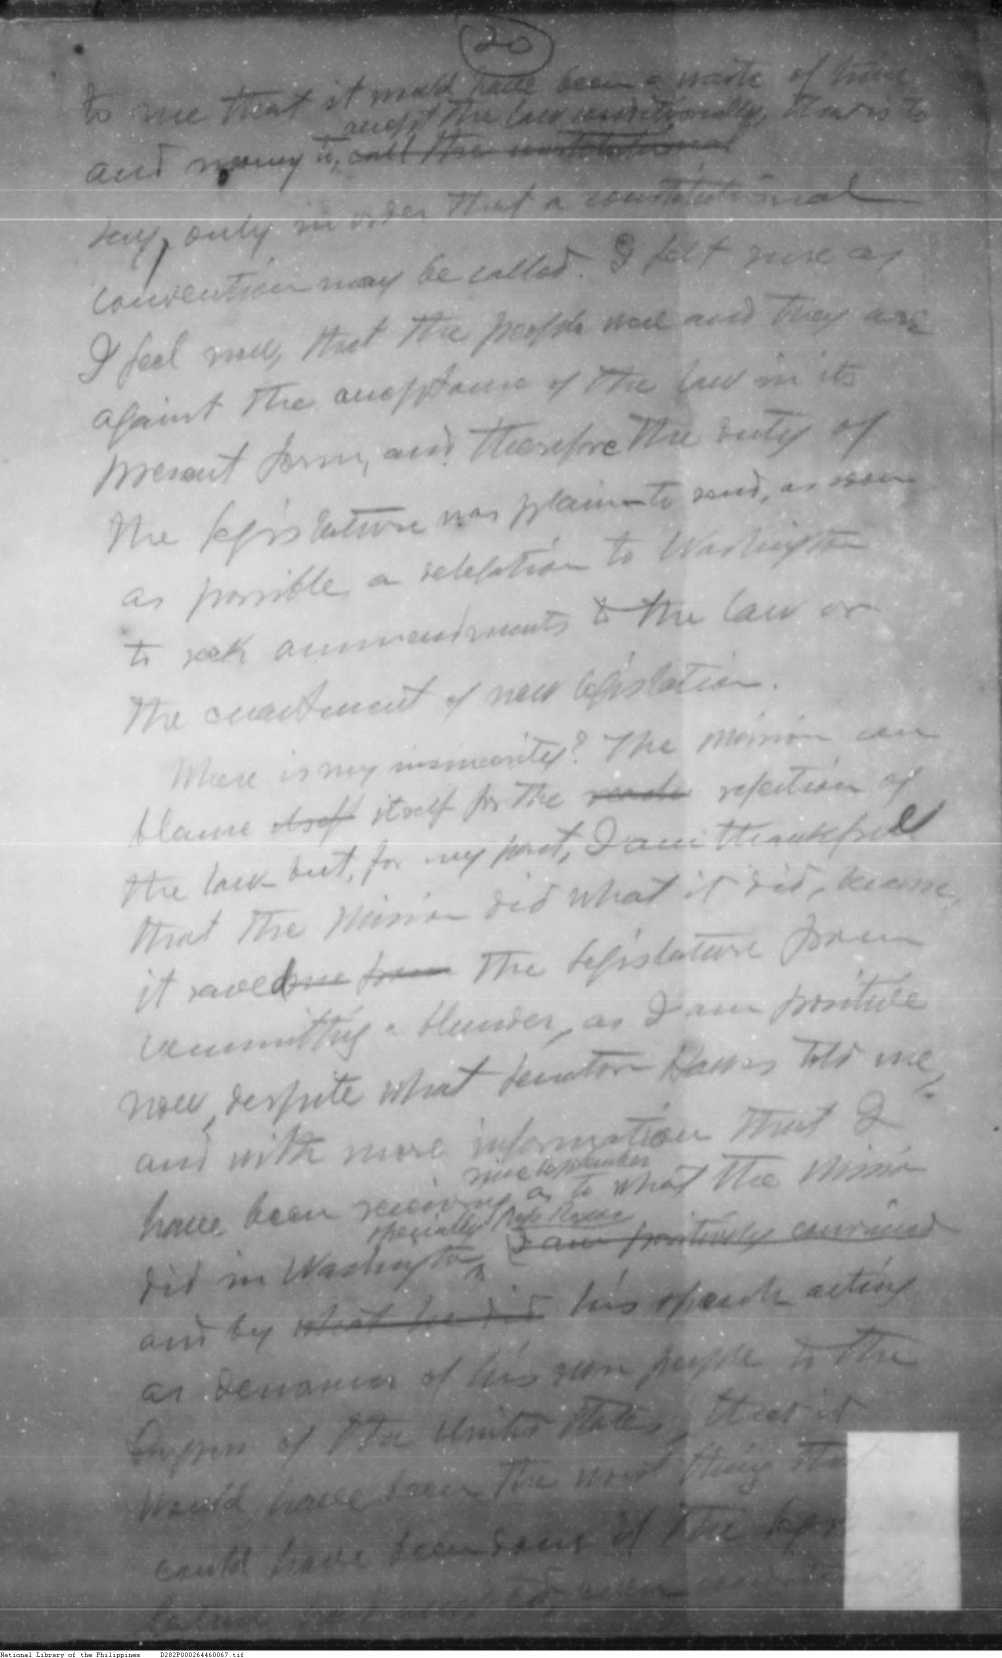 20
to me that it would have been a waste of time
accept the law conditionally, that is to
and money to, call the constitutional
say, only in order that a constitutional
convention may be called. I felt sure as
I feel now, that the people were and they are
against the acceptance of the law in its
present form, and therefore the duty of
the legislature was plain to send, as soon
as possible a delegation to Washington
to seek ammendments to the law or
the enactment of new legislation.
Where is my insincerity? The Mission can
blame itself itself for the rejection of
the law but, for my part, I am thankful
that the Mission did what it did, because,
it saved me from the legislature from
committing a blunder, as I am positive
now, despite what Senator Hawes told me,
and with more information that I
since September
have been receiving as to what the Mission
specially
did in Washington I am positively convinced
and by what he did his speech acting
as denouncer of his own people to the
of the United States, that it
would have been the worst thing that
could have been done if the
National Library of the Philippines D282P000264460067.tif